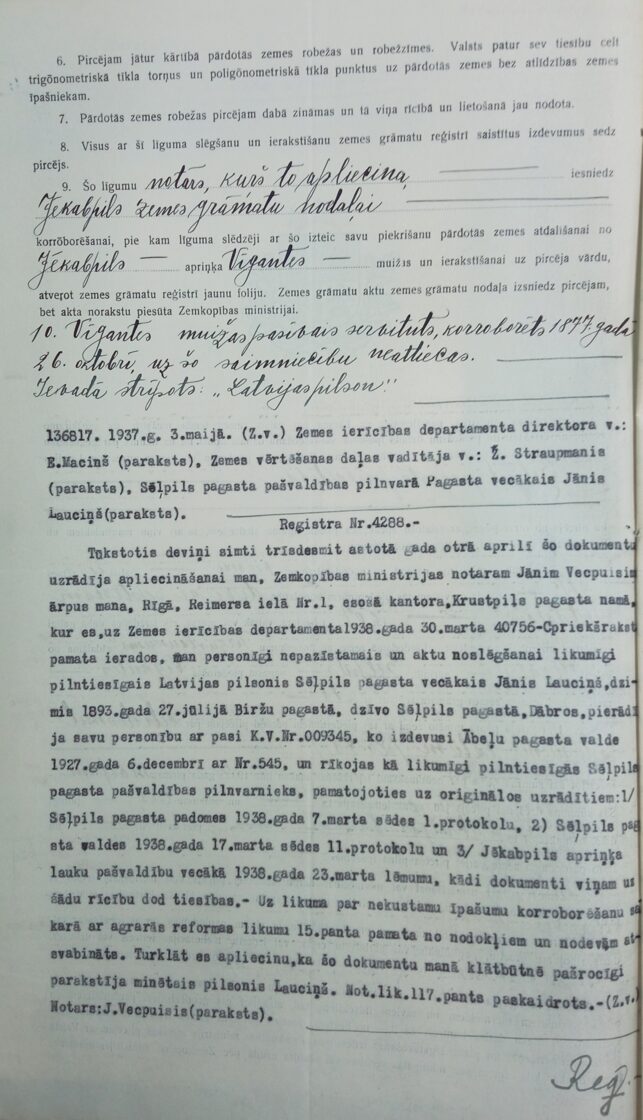 6. Pircējam jātur kārtībā pārdotās zemes robežas un robežzīmes. Valsts patur sev tiesību celt
trigōnometriskā tīkla torņus un poligōnometriskā tīkla punktus uz pārdotās zemes bez atlīdzības zemes
īpašniekam.
7. Pārdotās zemes robežas pircējam dabā zināmas un tā viņa rīcībā un lietošanā jau nodota.
8. Visus ar šī līguma slēgšanu un ierakstīšanu zemes grāmatu reģistrī saistītus izdevumus sedz
pircējs.
9. Šo līgumu notārs, kurš to apliecina, iesniedz
Jēkabpils zemes grāmatu nodaļai
korrōborēšanai, pie kam līguma slēdzēji ar šo izteic savu piekrišanu pārdotās zemes atdalīšanai no
Jēkabpils — apriņķa Vīgantes — muižas un ierakstīšanai uz pircēja vārdu,
atveŗot zemes grāmatu reģistrī jaunu foliju. Zemes grāmatu aktu zemes grāmatu nodaļa izsniedz pircējam,
bet akta norakstu piesūta Zemkopības ministrijai.
10. Vīgantes muižas pasīvais servitūts, korroborēts 1877. gada
26. oktobrī, uz šo saimniecību neattiecas.
Ievadā strīpots: „Latvijas pilson."
136817. 1937.g. 3.maijā. (Z.v.) Zemes ierīcības departamenta direktora v.:
E.Maciņš (paraksts), Zemes vērtēšanas daļas vadītāja v.: Ž. Straupmanis
(paraksts), Sēlpils pagasta pašvaldības pilnvarā Pagasta vecākais Jānis
Lauciņš(paraksts).
Reģistra Nr.4288.-
Tūkstotis deviņi simti trīsdesmit astotā gada otrā aprilī šo dokumentu
uzrādīja apliecināšanai man, Zemkopības ministrijas notaram Jānim Vecpuisim
ārpus mana, Rīgā, Reimersa ielā Nr.1, esošā kantora,Krustpils pagasta namā,
kur es,uz Zemes ierīcības departamenta1938.gada 30.marta 40756-Cpriekšrakst
pamata ierados, man personīgi nepazīstamais un aktu noslēgšanai likumīgi
pilntiesīgais Latvijas pilsonis Sēļpils pagasta vecākais Jānis Lauciņš,dzi-
mis 1893.gada 27.jūlijā Biržu pagastā, dzīvo Sēļpils pagastā,Dābros,pierādī
ja savu personību ar pasi K.V.Nr.009345, ko izdevusi Ābeļu pagasta valde
1927.gada 6.decembrī ar Nr.545, un rīkojas kā likumīgi pilntiesīgās Sēļpils
pagasta pašvaldības pilnvarnieks, pamatojoties uz originālos uzrādītiem:1/
Sēļpils pagasta padomes 1938.gada 7.marta sēdes 1.protokolu, 2) Sēļpils pag
sta valdes 1938.gada 17.marta sēdes 11.protokolu un 3/ Jēkabpils apriņķa
lauku pašvaldības vecākā 1938.gada 23.marta lēmumu, kādi dokumenti viņam uz
šādu rīcību dod tiesības.- Uz likuma par nekustamu īpašumu korroborēšanu sa
karā ar agrarās reformas likumu 15.panta pamata no nodokļiem un nodevām at-
svabināts. Turklāt es apliecinu,ka šo dokumentu manā klātbūtnē pašrocīgi
parakstīja minētais pilsonis Lauciņš. Not.lik.117.pants paskaidrots.-(Z.v.)
Notars:J.Vecpuisis(paraksts).
Reģ